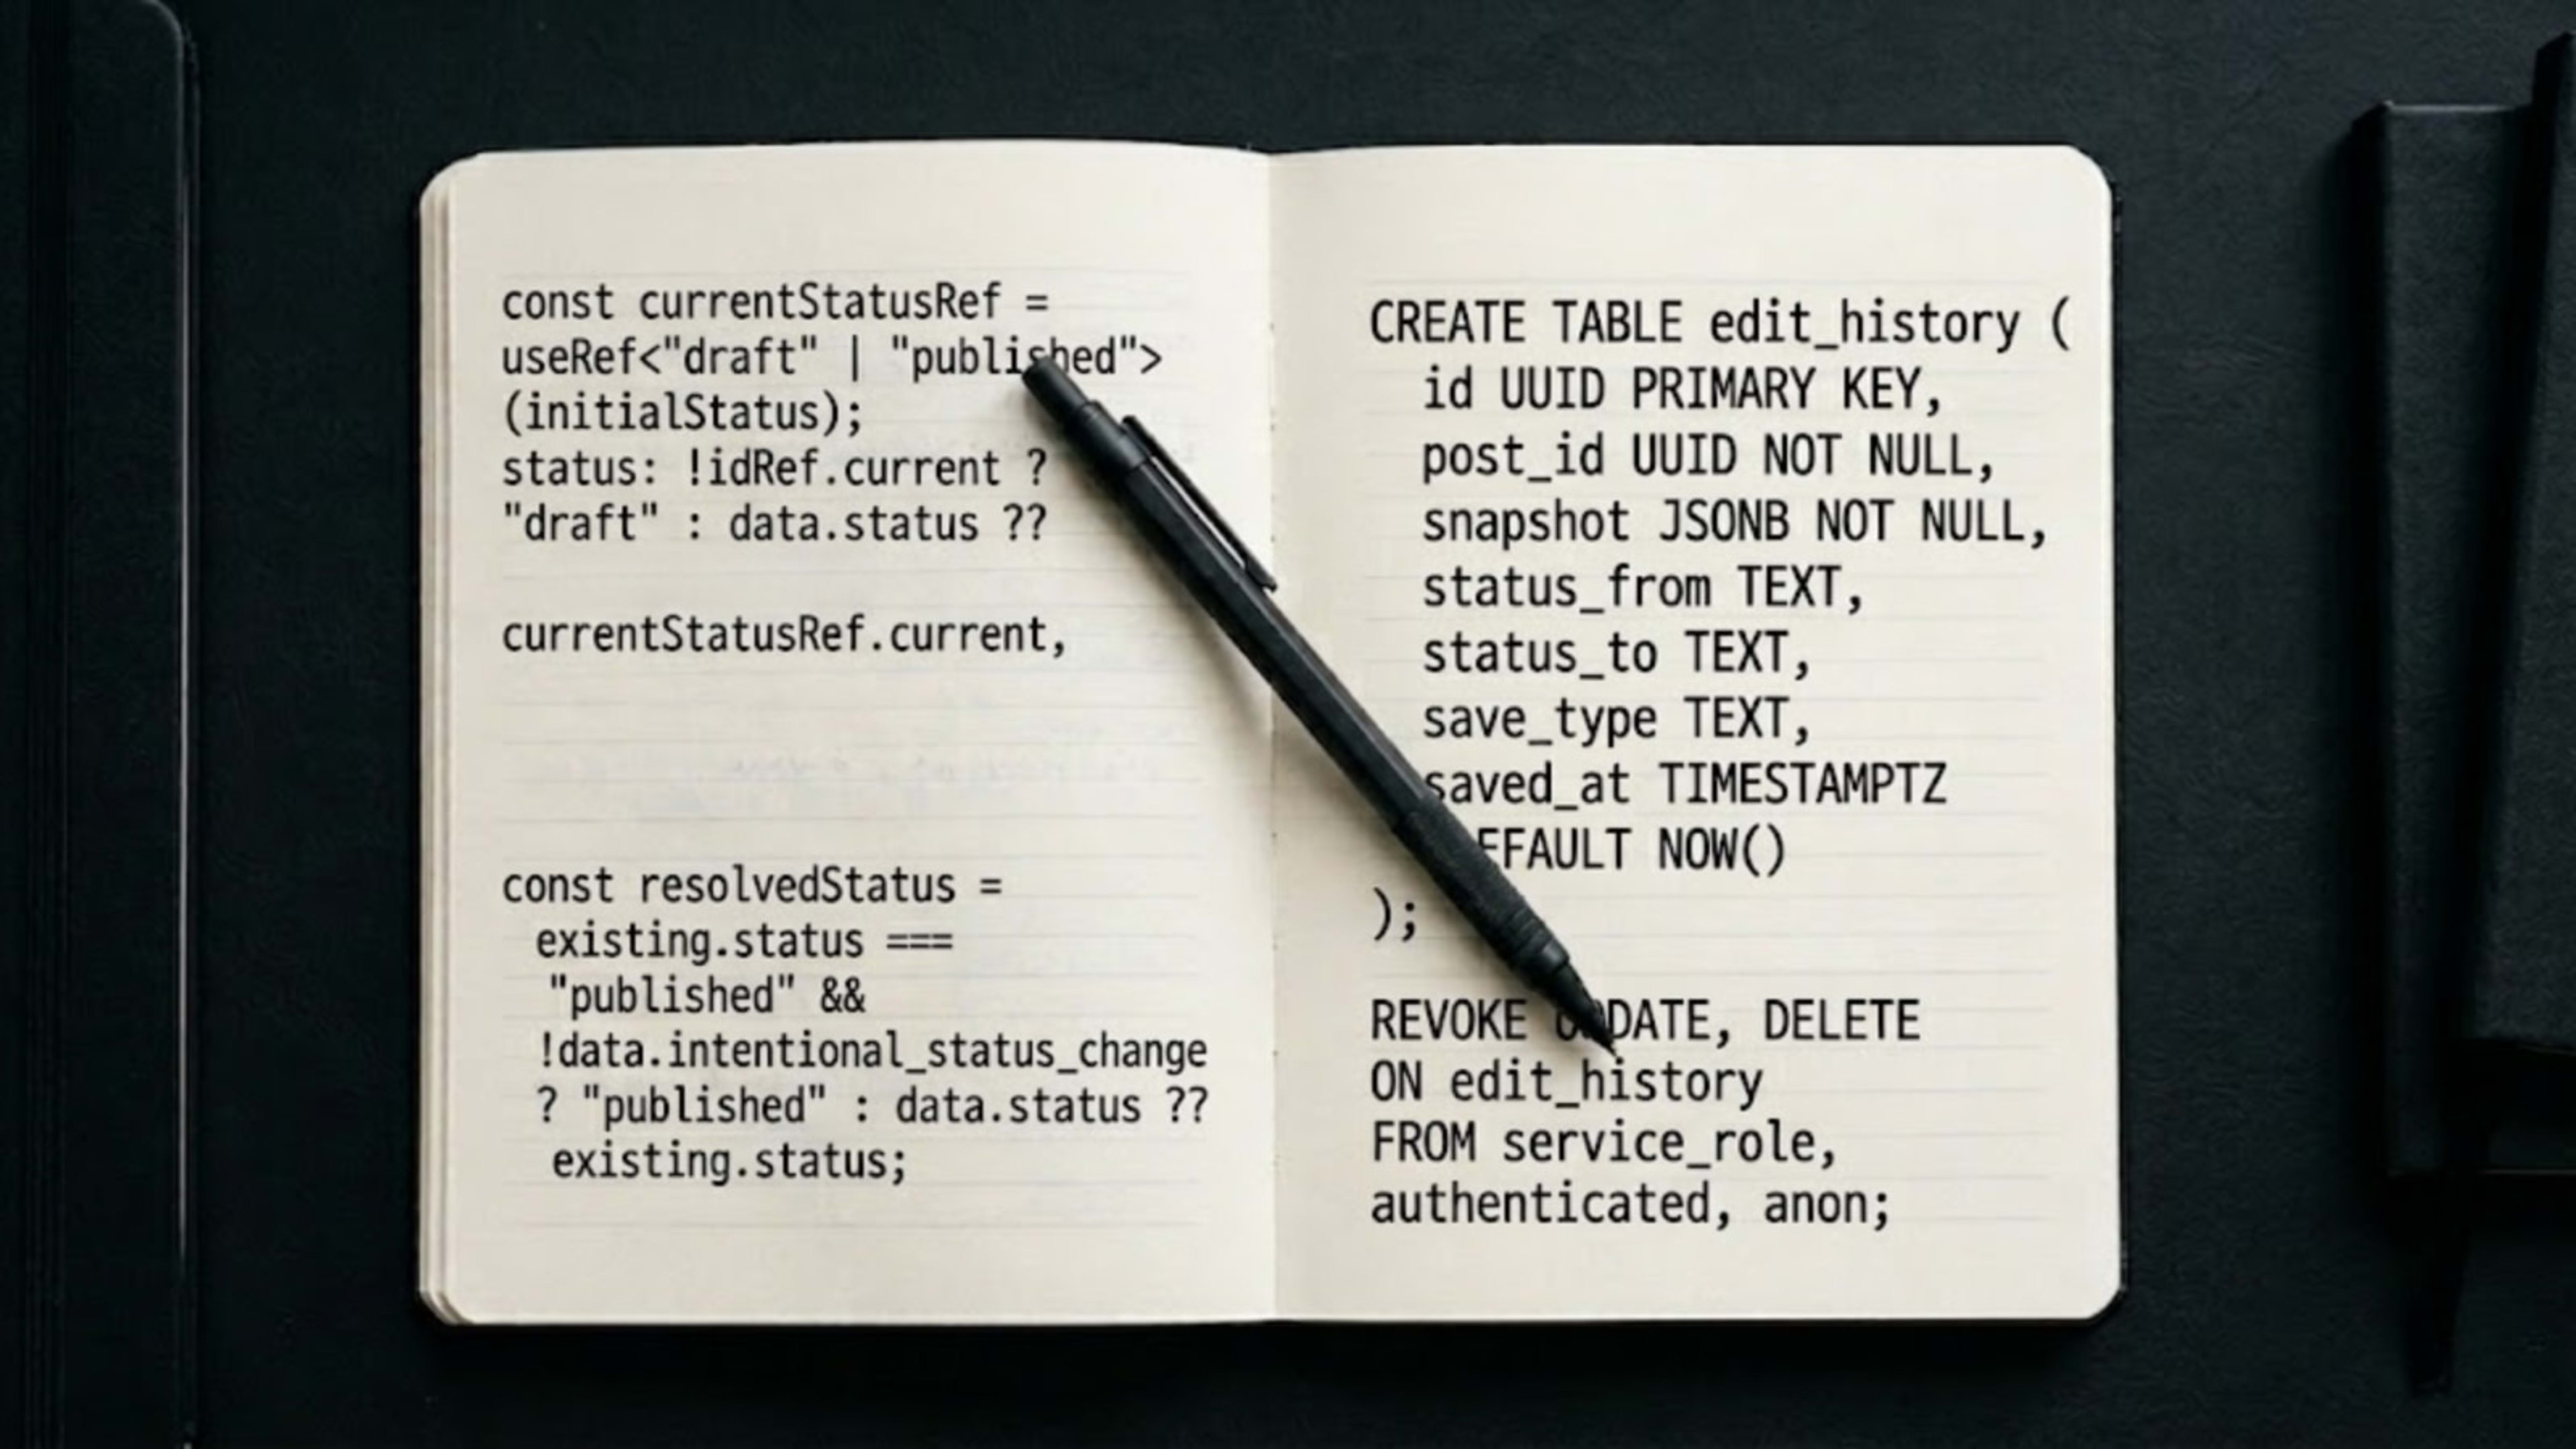 const currentStatusRef =
useRef<"draft" | "published">
(initialStatus);
status: !idRef.current ?
"draft" : data.status ??
currentStatusRef.current,
const resolvedStatus =
existing.status ===
"published" &&
!data.intentional_status_change
? "published" : data.status ??
existing.status;
CREATE TABLE edit_history (
id UUID PRIMARY KEY,
post_id UUID NOT NULL,
snapshot JSONB NOT NULL,
status_from TEXT,
status_to TEXT,
save_type TEXT,
saved_at TIMESTAMPTZ
EFAULT NOW()
);
REVOKE UPDATE, DELETE
ON edit_history
FROM service_role,
authenticated, anon;